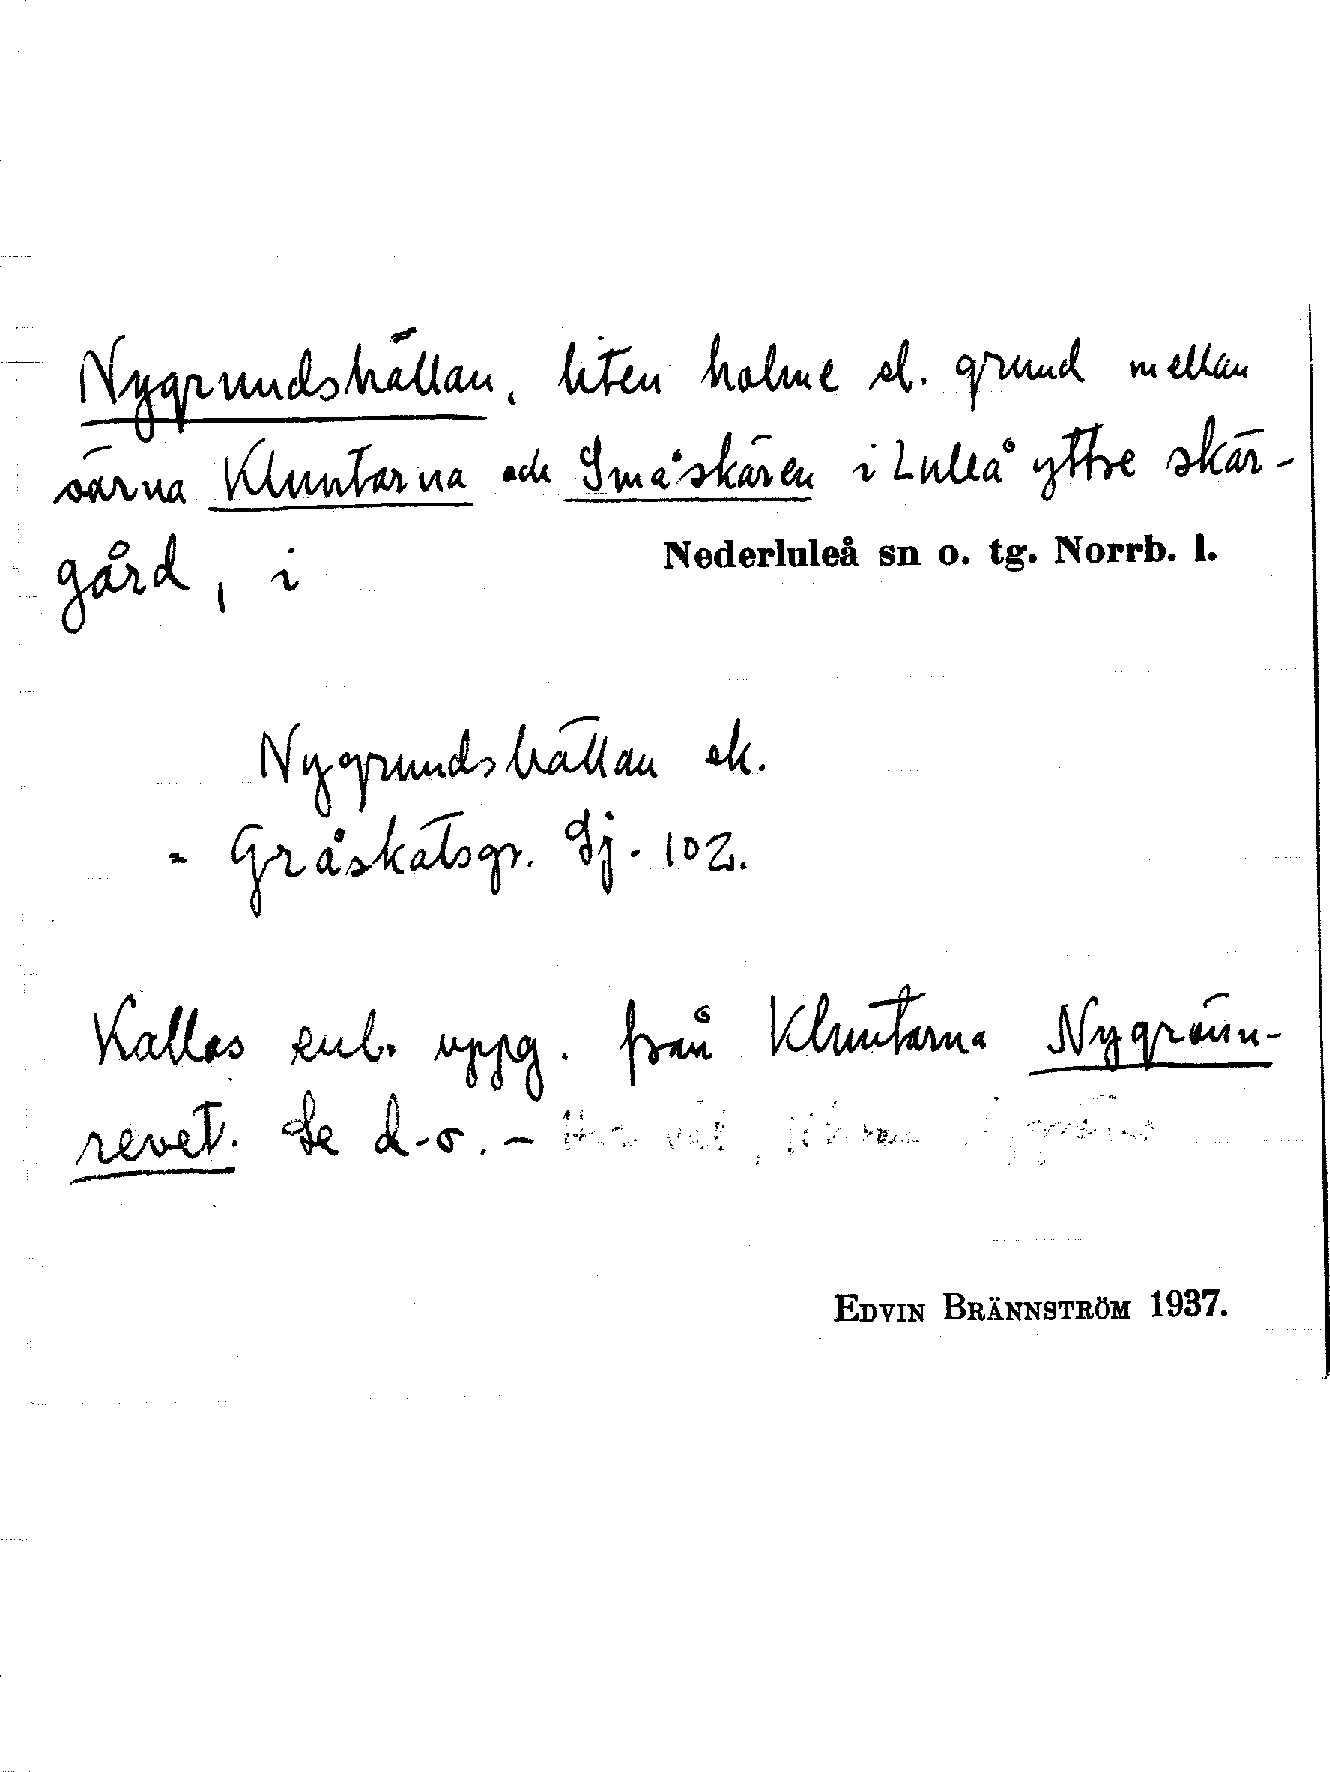 Nygrundshällan, liten holme el. grund mellan
öarna Kluntarna och Småskären i Luleå yttre skär-
gård, i Nederluleå sn o. tg. Norrb. l.
Nygrundshällan ek.
= Gråskatsgr. Sj. 102.
Kallas enl. uppg. från Kluntarna Nygrünn-
revet. Se d-o. –
EDVIN BRÄNNSTRÖM 1937.